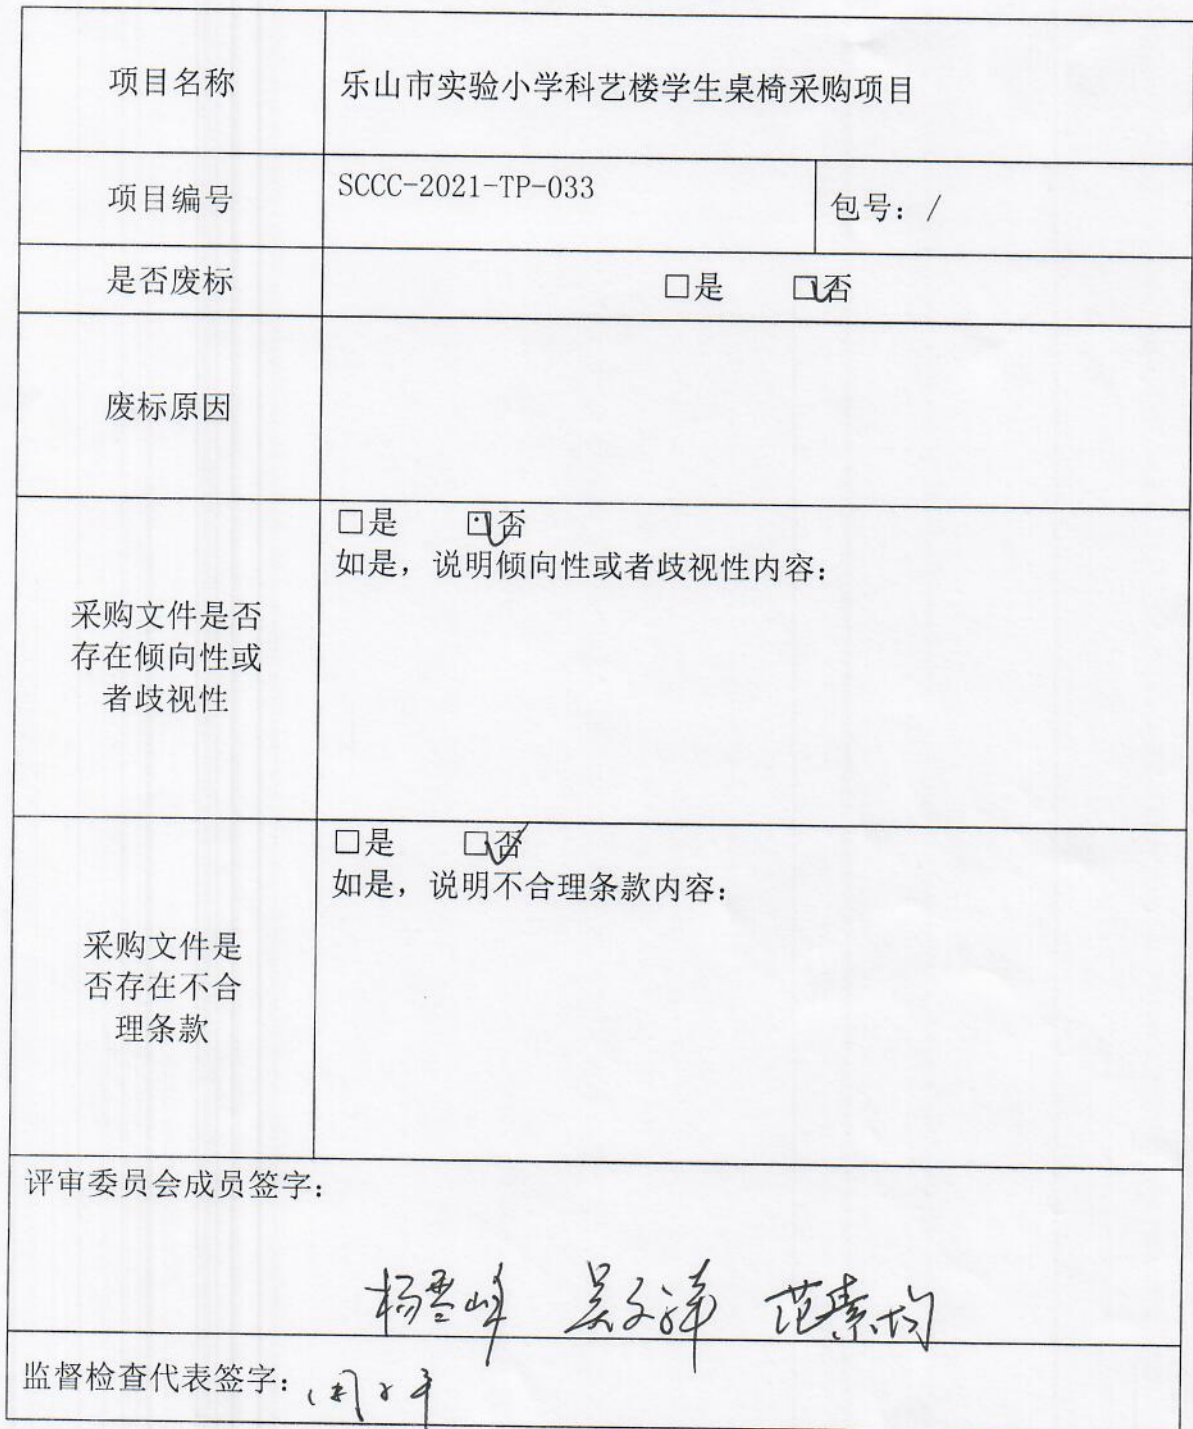 项目名称
乐山市实验小学科艺楼学生桌椅采购项目
项目编号
SCCC-2021-TP-033
包号：/
是否废标
□是 □否
废标原因
采购文件是否
存在倾向性或
者歧视性
□是 □否
如是，说明倾向性或者歧视性内容：
采购文件是
否存在不合
理条款
□是 □否
如是，说明不合理条款内容：
评审委员会成员签字：
杨雪峰 吴文 范素均
监督检查代表签字：